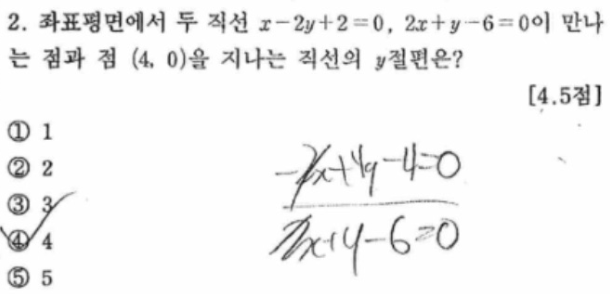 2. 좌표평면에서 두 직선 x-2y+2=0, 2x+y-6=0이 만나
는 점과 점 (4, 0)을 지나는 직선의 y절편은?
[4.5점]
① 1
② 2
③ 3
④ 4
⑤ 5
-2x+4y-4=0
2x+y-6=0